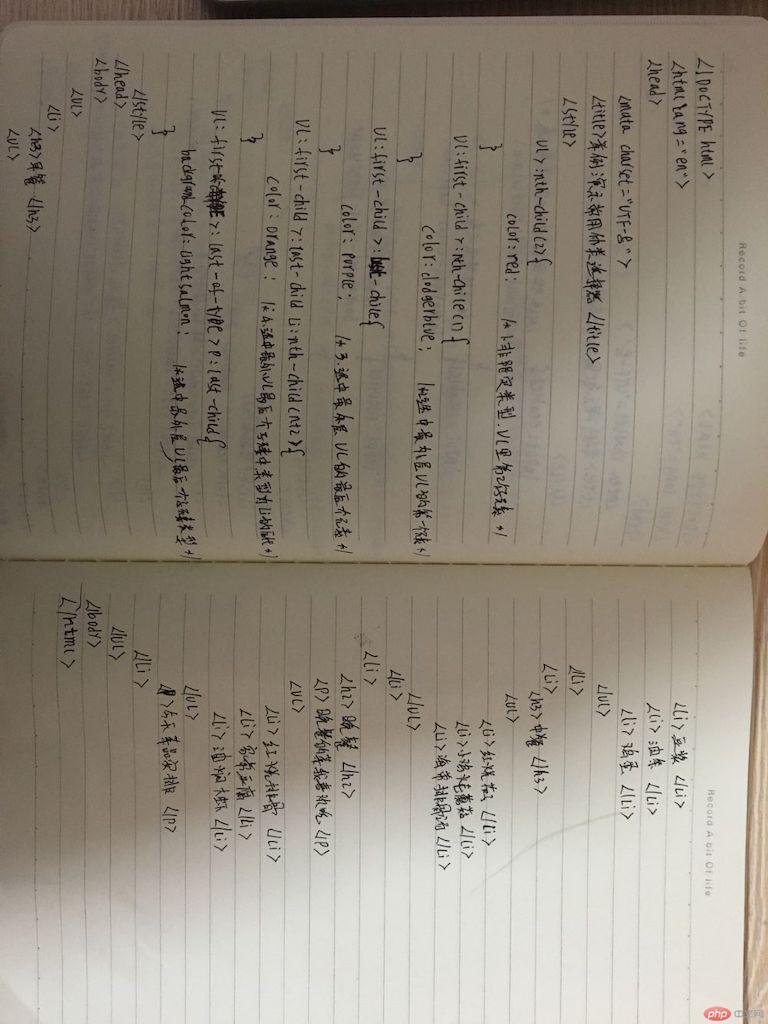 Record A bit Of life
<!DOCTYPE html>
<html lang="en">
<head>
<mata charset="UTF-8">
<title>案例:演示常用伪类选择器 </title>
<style>
UL>:nth-child(2){
color:red;
/*1.非限定类型.UL里第2个
*/
}
UL:first-child>:nth-child(1){
color:dodgerblue;
/*2.选中最外层UL的第一个元素*/
}
UL:first-child>:last-child{
color:purple;
/*3.选中最外层UL的最后一个元素*/
}
UL:first-child>:last-child li:nth-child(n+2){
color:orange;
/*4.选中最外UL最后一个
类型为li的
*/
}
UL:first
>:last-of-type>p:last-child{
backgrand-color:lightsalmon;
/*选中最外层UL最后一个
类型*/
}
</style>
</head>
<body>
<UL>
<li>
<h3>早餐 </h3>
<UL>
Record A bit Of life
<li>豆浆 </li>
<li>油条 </li>
<li>鸡蛋 </li>
</UL>
</li>
<li>
<h3>中餐 </h3>
<UL>
<li>红烧茄子 </li>
<li>小鸡炖蘑菇 </li>
<li>海带排骨汤 </li>
</UL>
</li>
<li>
<h2>晚餐 </h2>
<p>晚餐的菜
</p>
<UL>
<li>红烧排骨 </li>
<li>家常豆腐 </li>
<li>油焖大虾 </li>
</UL>
菜品
</p>
</li>
</UL>
</body>
</html>
php 中文网